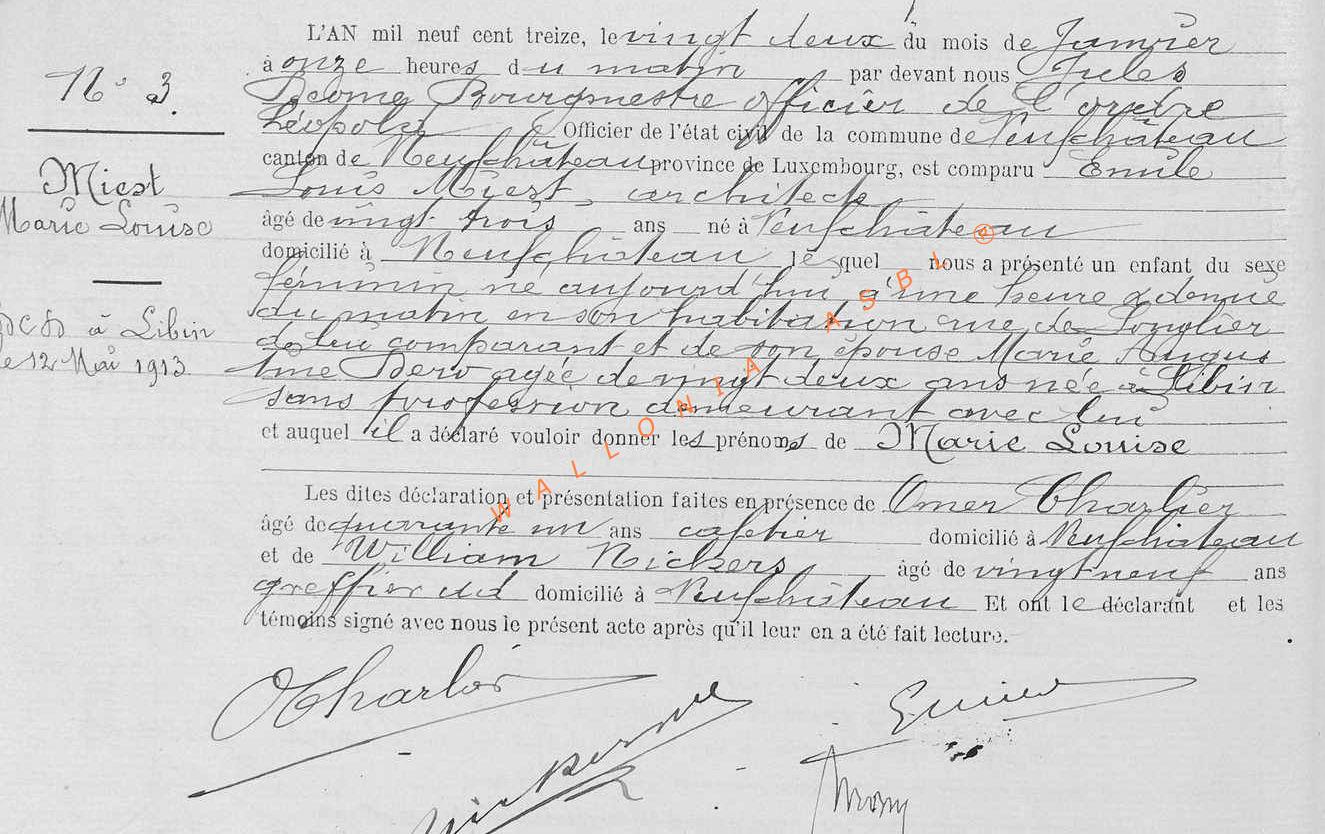 L'AN mil neuf cent treize, le vingt deux du mois de Janvier
à onze heures du matin par devant nous Jules
N° 3.
Bourgmestre officier de l'ordre
Léopold Officier de l'état civil de la commune de Neufchâteau
canton de Neufchâteau province de Luxembourg, est comparu Emile
Miest
Marie Louise
Louis Miest, architecte
âgé de vingt trois ans né à Neufchâteau
domicilié à Neufchâteau lequel nous a présenté un enfant du sexe
féminin né aujourd'hui à une heure & demie
du matin en son habitation rue de Longlier
DCD à Libin
le 12 Mai 1913
de lui comparant et de son épouse Marie Augus
tine agée de vingt deux ans née à Libin
sans profession demeurant avec lui
et auquel il a déclaré vouloir donner les prénoms de Marie Louise
Les dites déclaration et présentation faites en présence de Omer Charlier
âgé de quarante un ans cafetier domicilié à Neufchâteau
et de William Nickers âgé de vingt neuf ans
greffier domicilié à Neufchâteau Et ont le déclarant et les
témoins signé avec nous le présent acte après qu'il leur en a été fait lecture.
WALLONIA ASBL ®
OCharlier